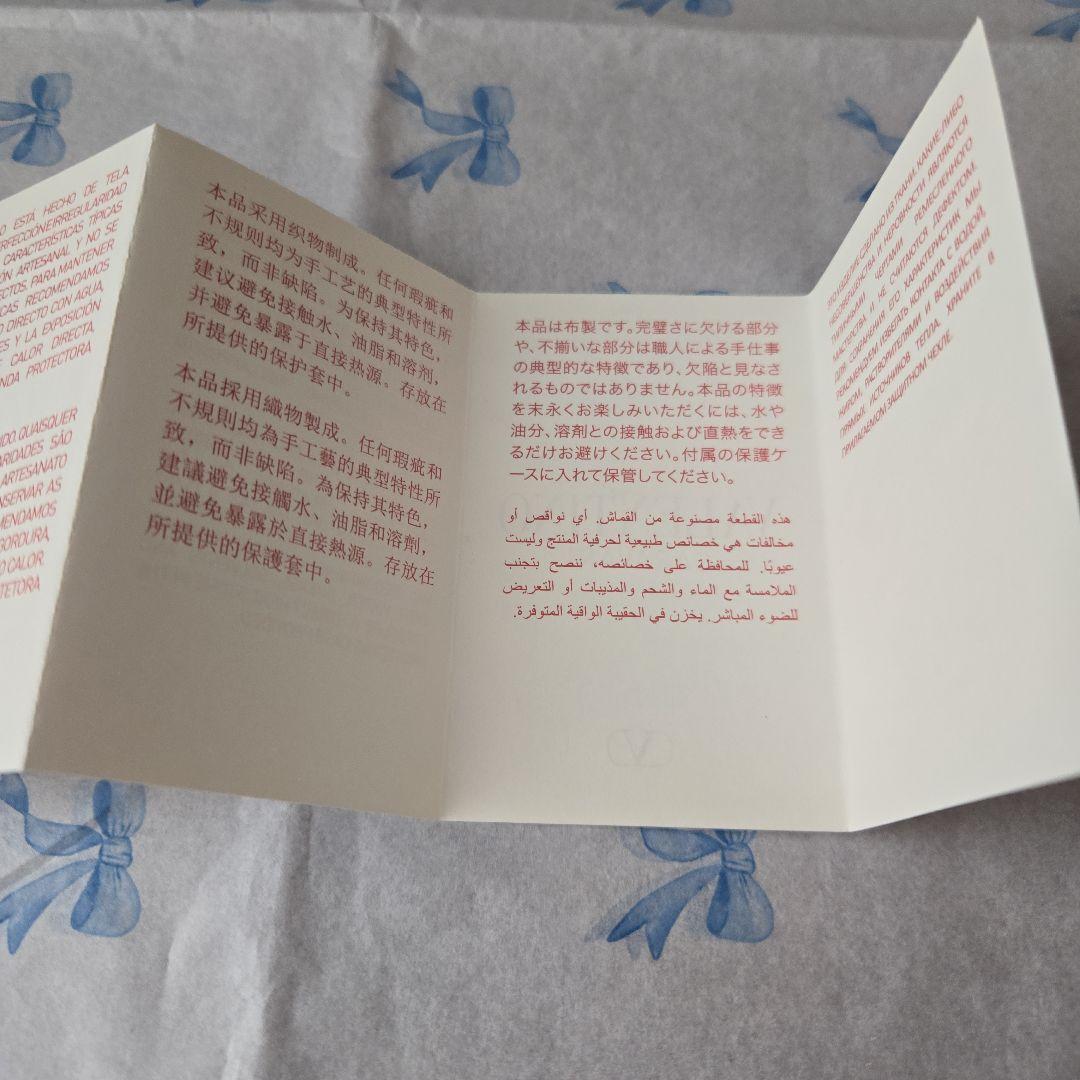 O ESTÁ HECHO DE TELA
PERFECCIÓN E IRREGULARIDAD
CARACTERÍSTICAS TÍPICAS
ÓN ARTESANAL Y NO SE
ECTOS. PARA MANTENER
ICAS RECOMENDAMOS
O DIRECTO CON AGUA,
ES Y LA EXPOSICIÓN
E CALOR DIRECTA.
NDA PROTECTORA
IDO. QUAISQUER
ARIDADES SÃO
ARTESANATO
NSERVAR AS
MENDAMOS
GORDURA,
O CALOR.
TETORA
本品采用织物制成。任何瑕疵和
不规则均为手工艺的典型特性所
致，而非缺陷。为保持其特色，
建议避免接触水、油脂和溶剂，
并避免暴露于直接热源。存放在
所提供的保护套中。
本品採用織物製成。任何瑕疵和
不規則均為手工藝的典型特性所
致，而非缺陷。為保持其特色，
建議避免接觸水、油脂和溶劑，
並避免暴露於直接熱源。存放在
所提供的保護套中。
本品は布製です。完璧さに欠ける部分
や、不揃いな部分は職人による手仕事
の典型的な特徴であり、欠陥と見なさ
れるものではありません。本品の特徴
を末永くお楽しみいただくには、水や
油分、溶剤との接触および直熱をでき
るだけお避けください。付属の保護ケ
ースに入れて保管してください。
هذه القطعة مصنوعة من القماش. أي نواقص أو
مخالفات هي خصائص طبيعية لحرفية المنتج وليست
عيوبًا. للمحافظة على خصائصه، ننصح بتجنب
الملامسة مع الماء والشحم والمذيبات أو التعريض
للضوء المباشر. يخزن في الحقيبة الواقية المتوفرة.
ЭТО ИЗДЕЛИЕ СДЕЛАНО ИЗ ТКАНИ. КАКИЕ-ЛИБО
НЕСОВЕРШЕНСТВА И НЕРОВНОСТИ ЯВЛЯЮТСЯ
ТИПИЧНЫМИ ЧЕРТАМИ РЕМЕСЛЕННОГО
МАСТЕРСТВА И НЕ СЧИТАЮТСЯ ДЕФЕКТОМ.
ДЛЯ СОХРАНЕНИЯ ЕГО ХАРАКТЕРИСТИК МЫ
РЕКОМЕНДУЕМ ИЗБЕГАТЬ КОНТАКТА С ВОДОЙ,
ЖИРОМ, РАСТВОРИТЕЛЯМИ И ВОЗДЕЙСТВИЯ
ПРЯМЫХ ИСТОЧНИКОВ ТЕПЛА. ХРАНИТЕ В
ПРИЛАГАЕМОМ ЗАЩИТНОМ ЧЕХЛЕ.